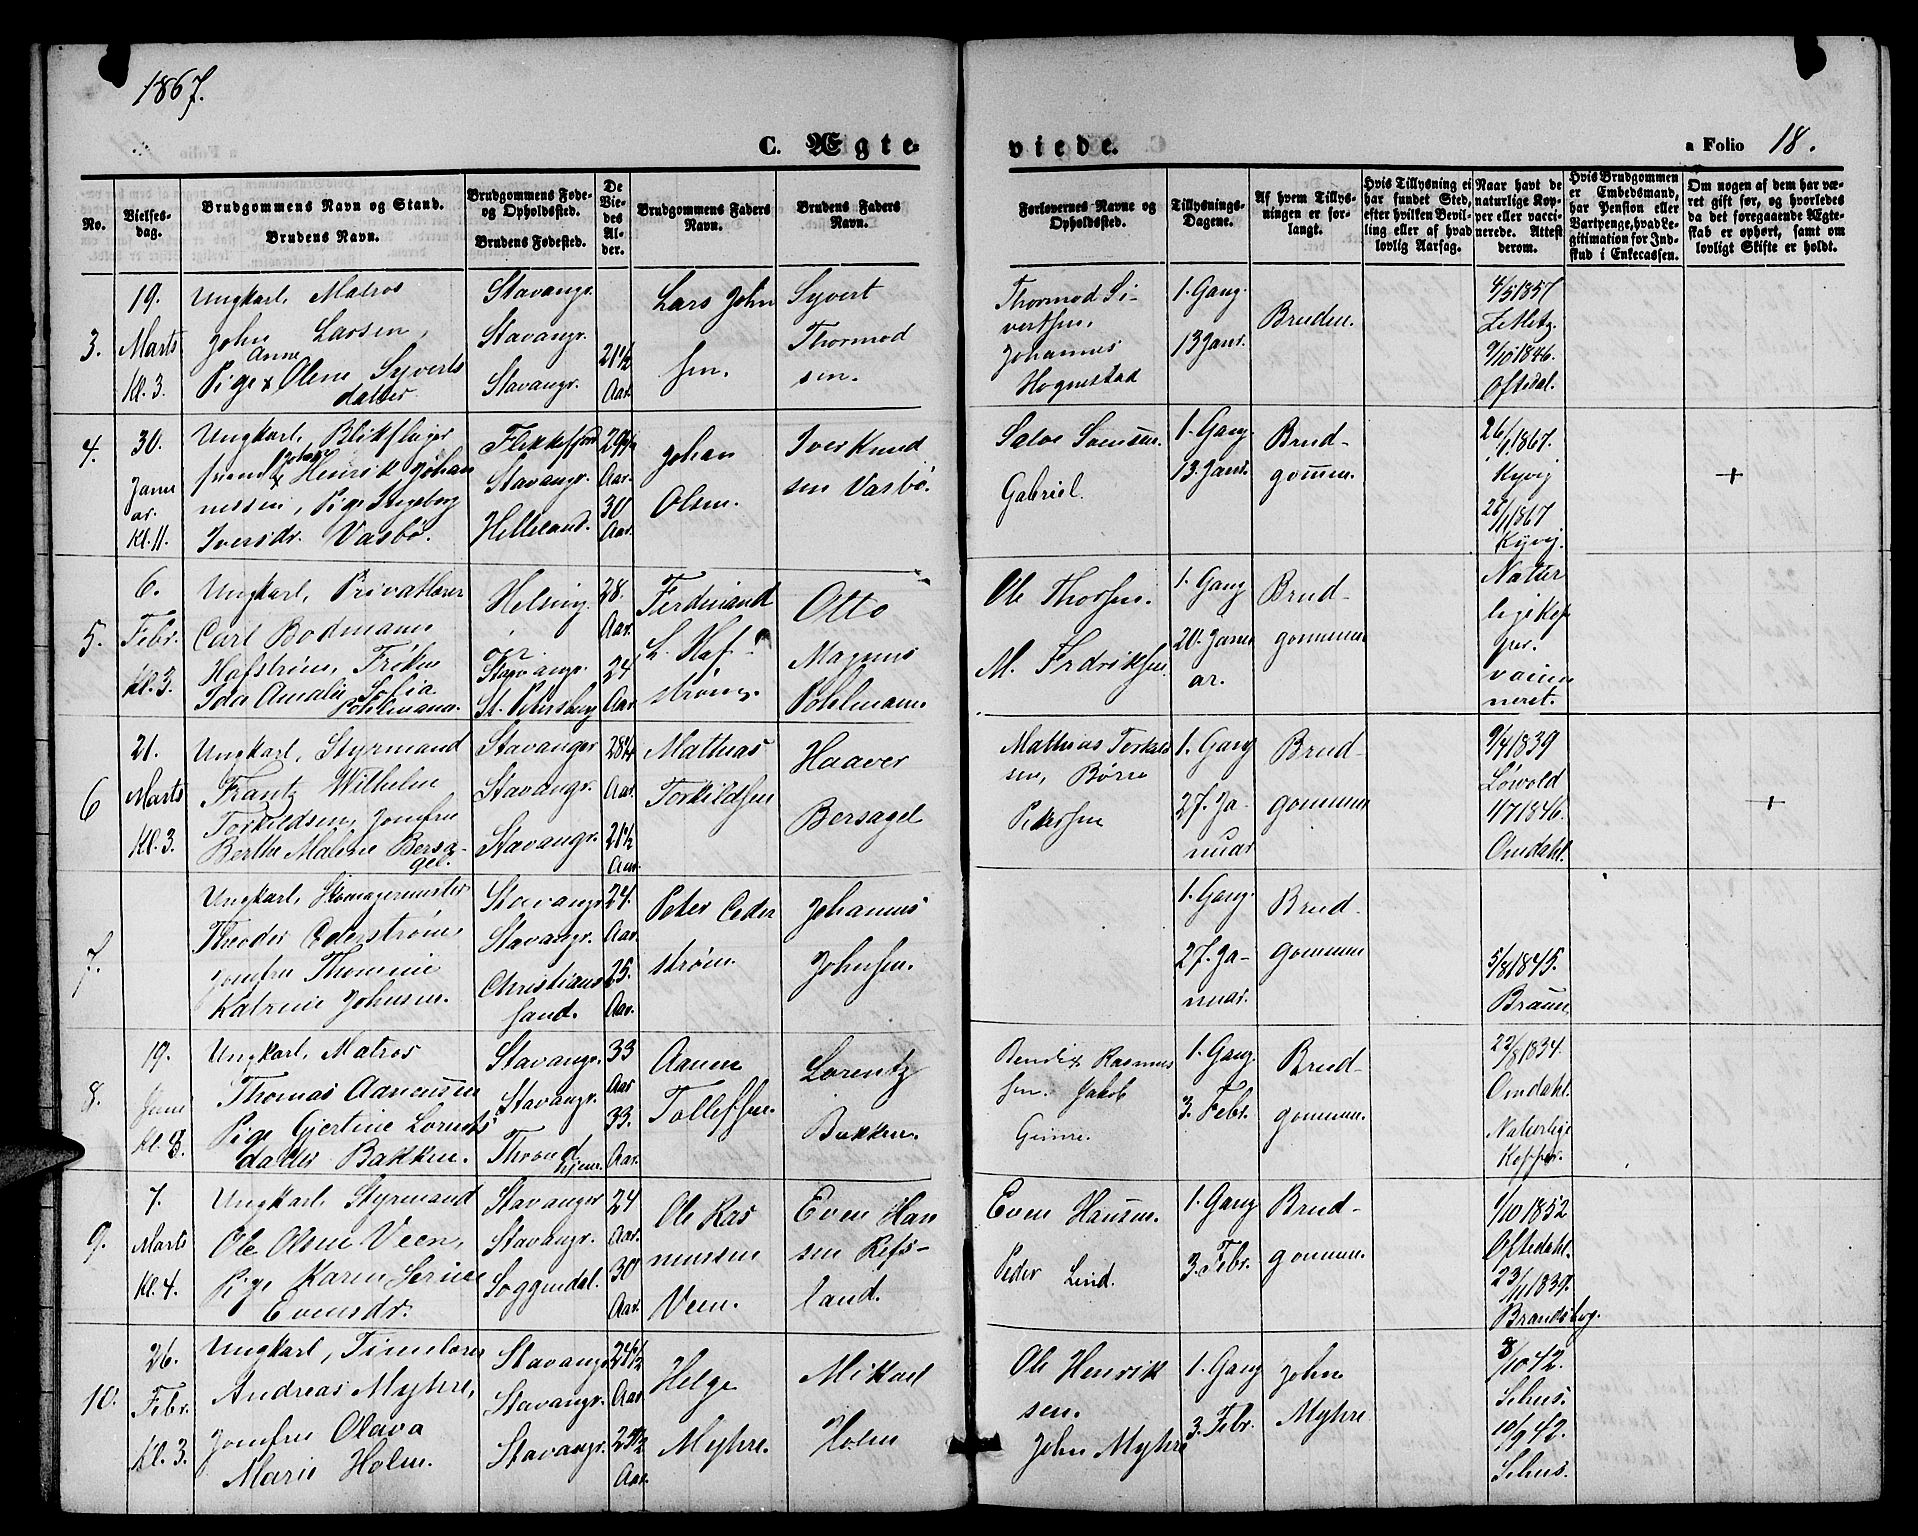 1867.
C. Ægte
viede.
a Folio 18.
No.
Vielses-
dag.
Brudgommens Navn og Stand.
Brudens Navn.
Brudgommens Føde-
og Opholdssted.
Brudens Fødested.
De
Vie-
des
Al-
der.
Brudgommens Faders
Navn.
Brudens Faders
Navn.
Forlovernes Navne og
Opholdssted.
Tillysnings-
Dagene.
Af hvem Tillys-
ningen er for-
langt.
Hvis Tillysning ei
har fundet Sted,
efter hvilken Bevil-
ling eller af hvad
lovlig Aarsag.
Naar havt de
naturlige Kop-
per eller vacci-
nerede. Attest
derom.
Hvis Brudgommen
er Embedsmand,
har Pension eller
Vartpenge, hvad Le-
gitimation for Ind-
skud i Enkecassen.
Om nogen af dem har væ-
ret gift før, og hvorledes
da det foregaaende Ægte-
skab er ophørt, samt om
lovligt Skifte er holdt.
3.
19.
Marts
Kl. 3.
Ungkarl, Matros
John Larsen,
Anne
Pige x Olene Syverts
datter
Stavangr.
Stavangr.
Stavangr.
21½
Aar.
Lars John
sen.
Syvert
Thormod
sen.
Thormod Si-
vertsen,
Johannes
Hognestad
1. Gang.
13 Janr.
Bruden.
4/5 1857
Zetlitz.
9/10 1846.
Oftedal.
4.
30.
Janu
ar.
Kl. 11.
Ungkarl, Blikslager
svend x Henrik Johan
nessen, Pige Ingeborg
Iversdr. Vasbø.
Flekkefjord
Stavangr.
Helleland.
Aar.
30
Aar.
Johan
Olsen.
Iver Knud
sen Vasbø.
Salve Samsen.
Gabriel.
1. Gang
13. Janr.
Brud-
gommen.
26/1 1867.
Kyvig
26/1 1867
Kyvig.
+
5.
6.
Febr.
Kl. 3.
Ungkarl, Privatlærer
Carl Bodmann
Hafstrøm, Frøken
Ida Amalie Sofia
Pohlmann.
Helsing
ør
Stavangr.
St. Petersburg
28.
Aar.
24
Aar.
Ferdinand
L. Haf-
strøm.
Otto
Magnus
Pohlmann
Ole Thorsen.
M. Fredriksen.
1. Gang
20. Janu
ar.
Brud-
gommen
Natur
lige Kop
per.
vacci
neret.
6
21.
Marts
Kl. 3.
Ungkarl, Styrmand
Frantz Wilhelm
Torkildsen, Jomfru
Berthe Malene Bersa-
gel.
Stavanger
Stavangr.
Stavangr.
28¼
Aar.
21½
Aar.
Mathias
Torkildsen
Haaver
Bersagel
Mathias Torkild
sen, Børre
Pedersen
1. Gang
27. Ja-
nuar
Brud-
gommen
9/4 1839
Løwold
4/7 1846.
Omdahl.
+
7.
Ungkarl, Skomagermester
Theodor Cederstrøm,
Jomfru Thomine
Katrine Johnsen.
Stavangr
Stavangr.
Christians
sand.
24.
Aar.
25.
Aar.
Peter Ceder
strøm.
Johannes
Johnsen.
1. Gang.
27. Ja-
nuar.
Brud-
gommen
5/8 1845.
Braun
8.
19.
June
Kl. 8.
Ungkarl, Matros
Thomas Aanensen
Pige Gjertine Lorents
datter Bakken.
Stavangr.
Stavangr.
Thrond
hjem.
33
Aar
33.
Aar.
Aanen
Tollefsen.
Lorentz
Bakken.
Bendix Rasmus
sen. Jakob
Gimre.
1. Gang
3. Febr.
Brud-
gommen.
22/8 1834.
Omdahl.
Naturlige
Kopper.
9.
7.
Marts
Kl. 4.
Ungkarl, Styrmand
Ole Olsen Veen,
Pige Karen Serine
Evensdr.
Stavanger
Stavangr.
Soggendal.
24
Aar.
30
Aar.
Ole Ras
mussen
Veen.
Even Han
sen Refs-
land.
Even Hansen.
Peder Lind.
1. Gang
3. Febr.
Brud-
gommen.
1/10 1852
Oftedahl.
23/11 1839.
Brandsbog.
10.
26.
Febr.
Kl. 3.
Ungkarl, Timelærer
Andreas Myhre,
Jomfru Olava
Marie Holm.
Stavangr
Stavangr.
Stavangr.
24½
Aar.
Aar.
Helge
Myhre.
Mikael
Holm
Ole Henrik
sen.
John Myhre
1. Gang
3. Febr.
John
Myhre
8/10 42.
Sehus.
10/9 42.
Sehus.